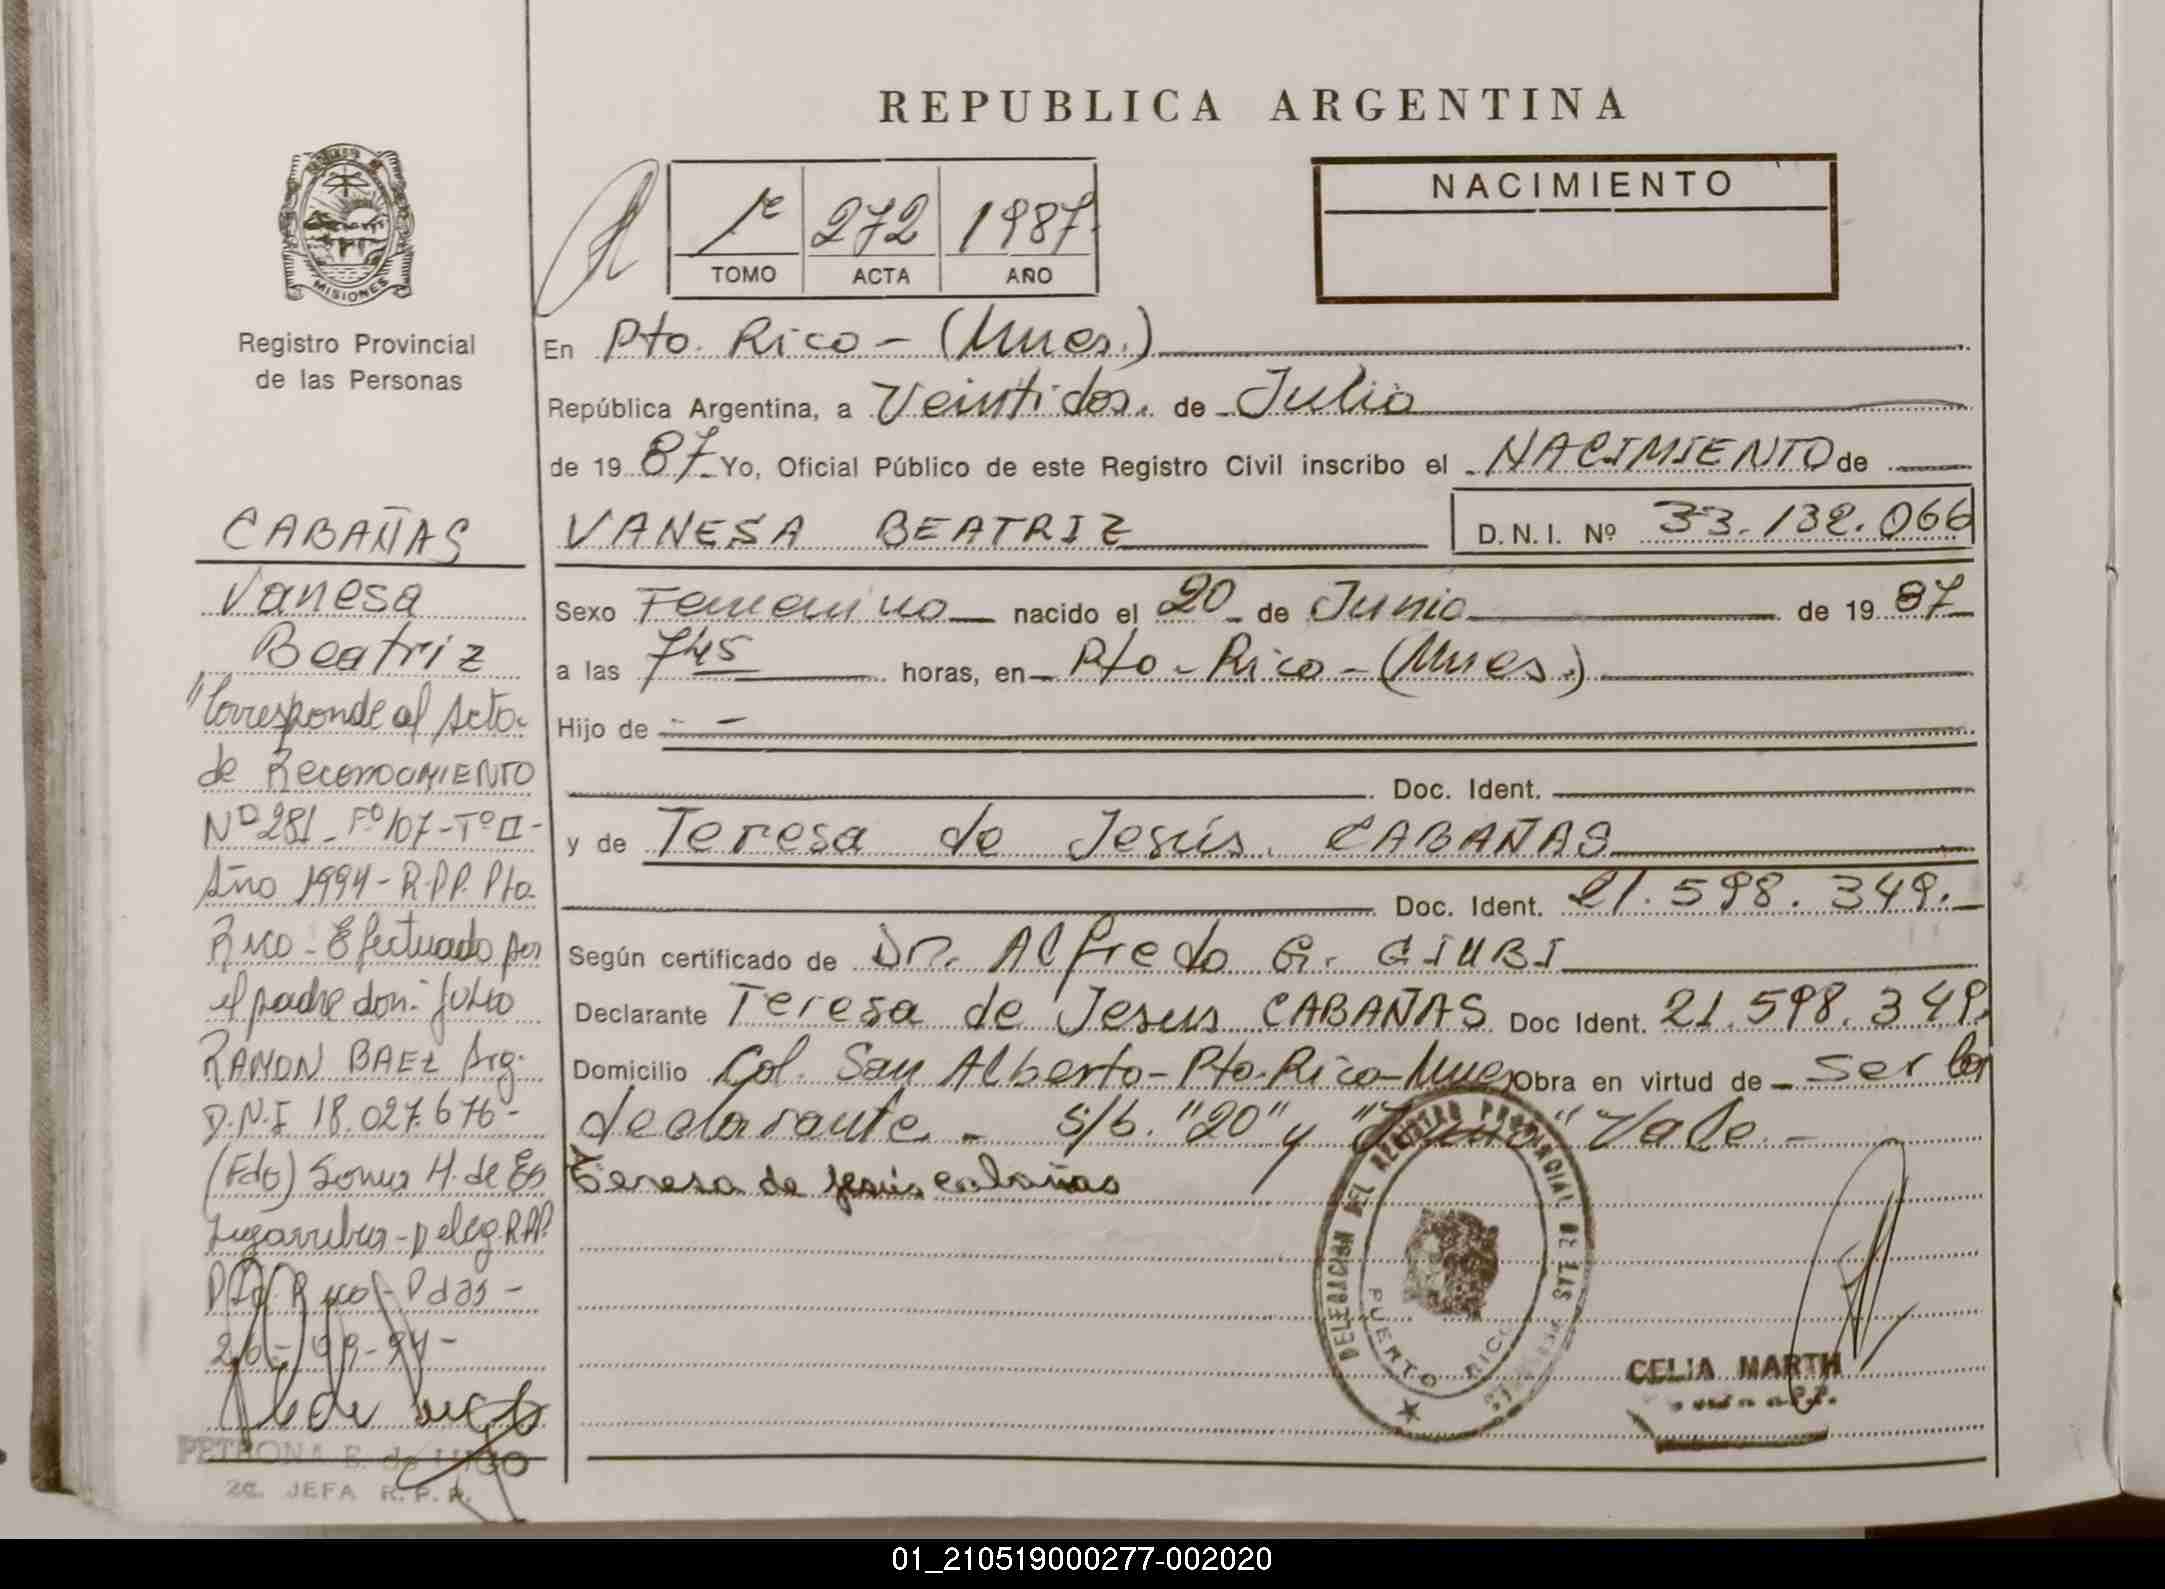 REPUBLICA ARGENTINA
MISIONES
Registro Provincial
de las Personas
1e 272 1987
TOMO ACTA AÑO
NACIMIENTO
En Pto. Rico - (Mnes.)
República Argentina, a Veintidos. de Julio
de 19 87 Yo, Oficial Público de este Registro Civil inscribo el NACIMIENTO de
VANESA BEATRIZ D.N.I. Nº 33.132.066
Sexo Femenino nacido el 20 de Junio de 19 87
a las 745 horas, en Pto - Rico - (Mnes.)
Hijo de - -
Doc. Ident.
y de Teresa de Jesús. CABAÑAS
Doc. Ident. 21.598.349.
Según certificado de Dr. Alfredo G. GIUBI
Declarante Teresa de Jesus CABAÑAS Doc Ident. 21.598.349.
Domicilio Col. San Alberto - Pto. Rico - Mnes Obra en virtud de - ser la
declarante. - S/b. "20" y "Junio" Vale. -
Teresa de Jesús cabañas
CABAÑAS
Vanesa
Beatriz
"Corresponde al Acta
de RECONOCIMIENTO
Nº 281 - Fº 107 - Tº II -
Año 1994 - R.P.P. Pto.
Rico - Efectuado por
el padre don: Julio
RAMON BAEZ Arg.
D.N.I 18.027.676 -
(Fdo) H. de
Deleg. R.P.P.
Pto. Rico - Pdas -
26 - 09 - 94 -
PETRONA E. de LUGO
2a. JEFA R.P.P.
DELEGACION DEL REGISTRO PROVINCIAL DE LAS
PUERTO RICO
CELIA MARTH
01_210519000277-002020